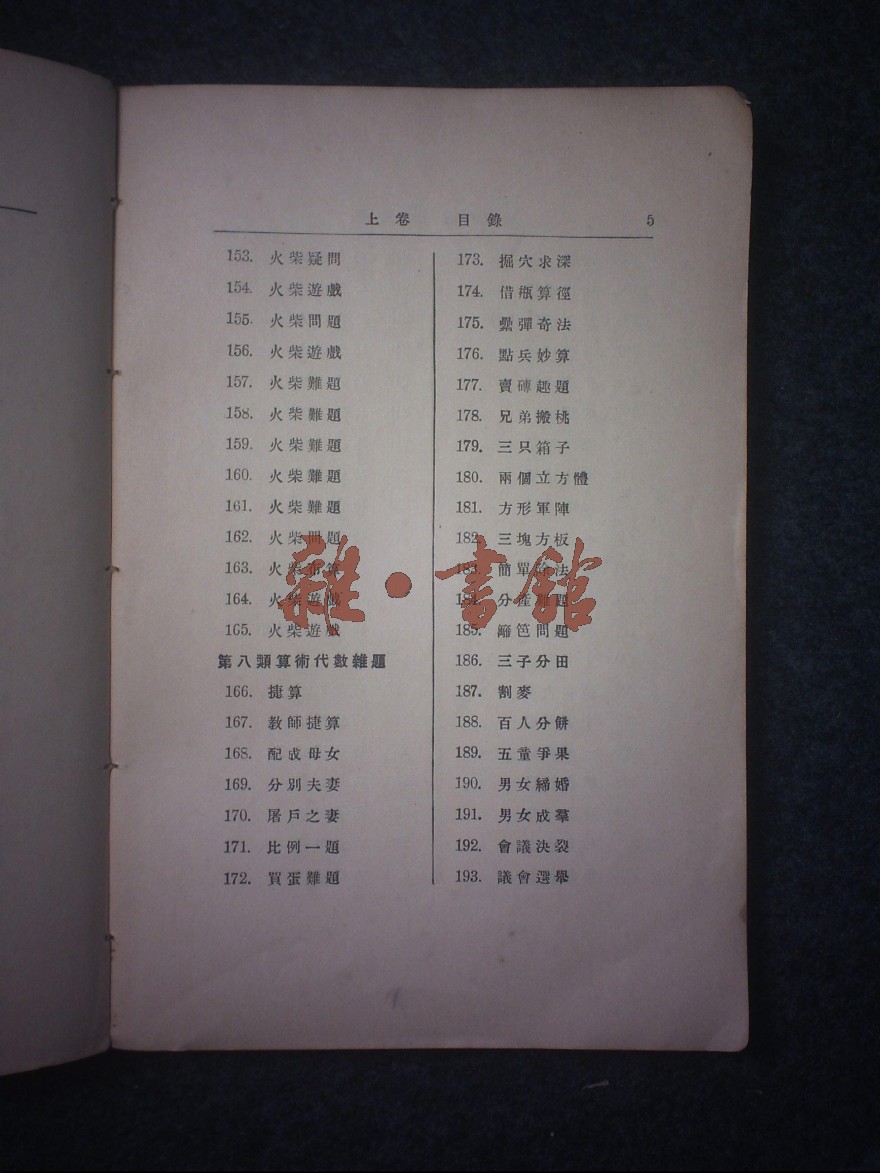 上卷 目錄 5
153. 火柴疑問
154. 火柴遊戲
155. 火柴問題
156. 火柴遊戲
157. 火柴難題
158. 火柴難題
159. 火柴難題
160. 火柴難題
161. 火柴難題
162. 火柴問題
163. 火柴布算
164. 火柴遊戲
165. 火柴遊戲
第八類算術代數雜題
166. 捷算
167. 教師捷算
168. 配成母女
169. 分別夫妻
170. 屠戶之妻
171. 比例一題
172. 買蛋難題
173. 掘穴求深
174. 借瓶算徑
175. 彈奇法
176. 點兵妙算
177. 賣磚趣題
178. 兄弟搬桃
179. 三只箱子
180. 兩個立方體
181. 方形軍陣
182. 三塊方板
183. 簡單除法
184. 分產難題
185. 籬笆問題
186. 三子分田
187. 割麥
188. 百人分餅
189. 五童爭果
190. 男女締婚
191. 男女成羣
192. 會議決裂
193. 議會選舉
雜·書館